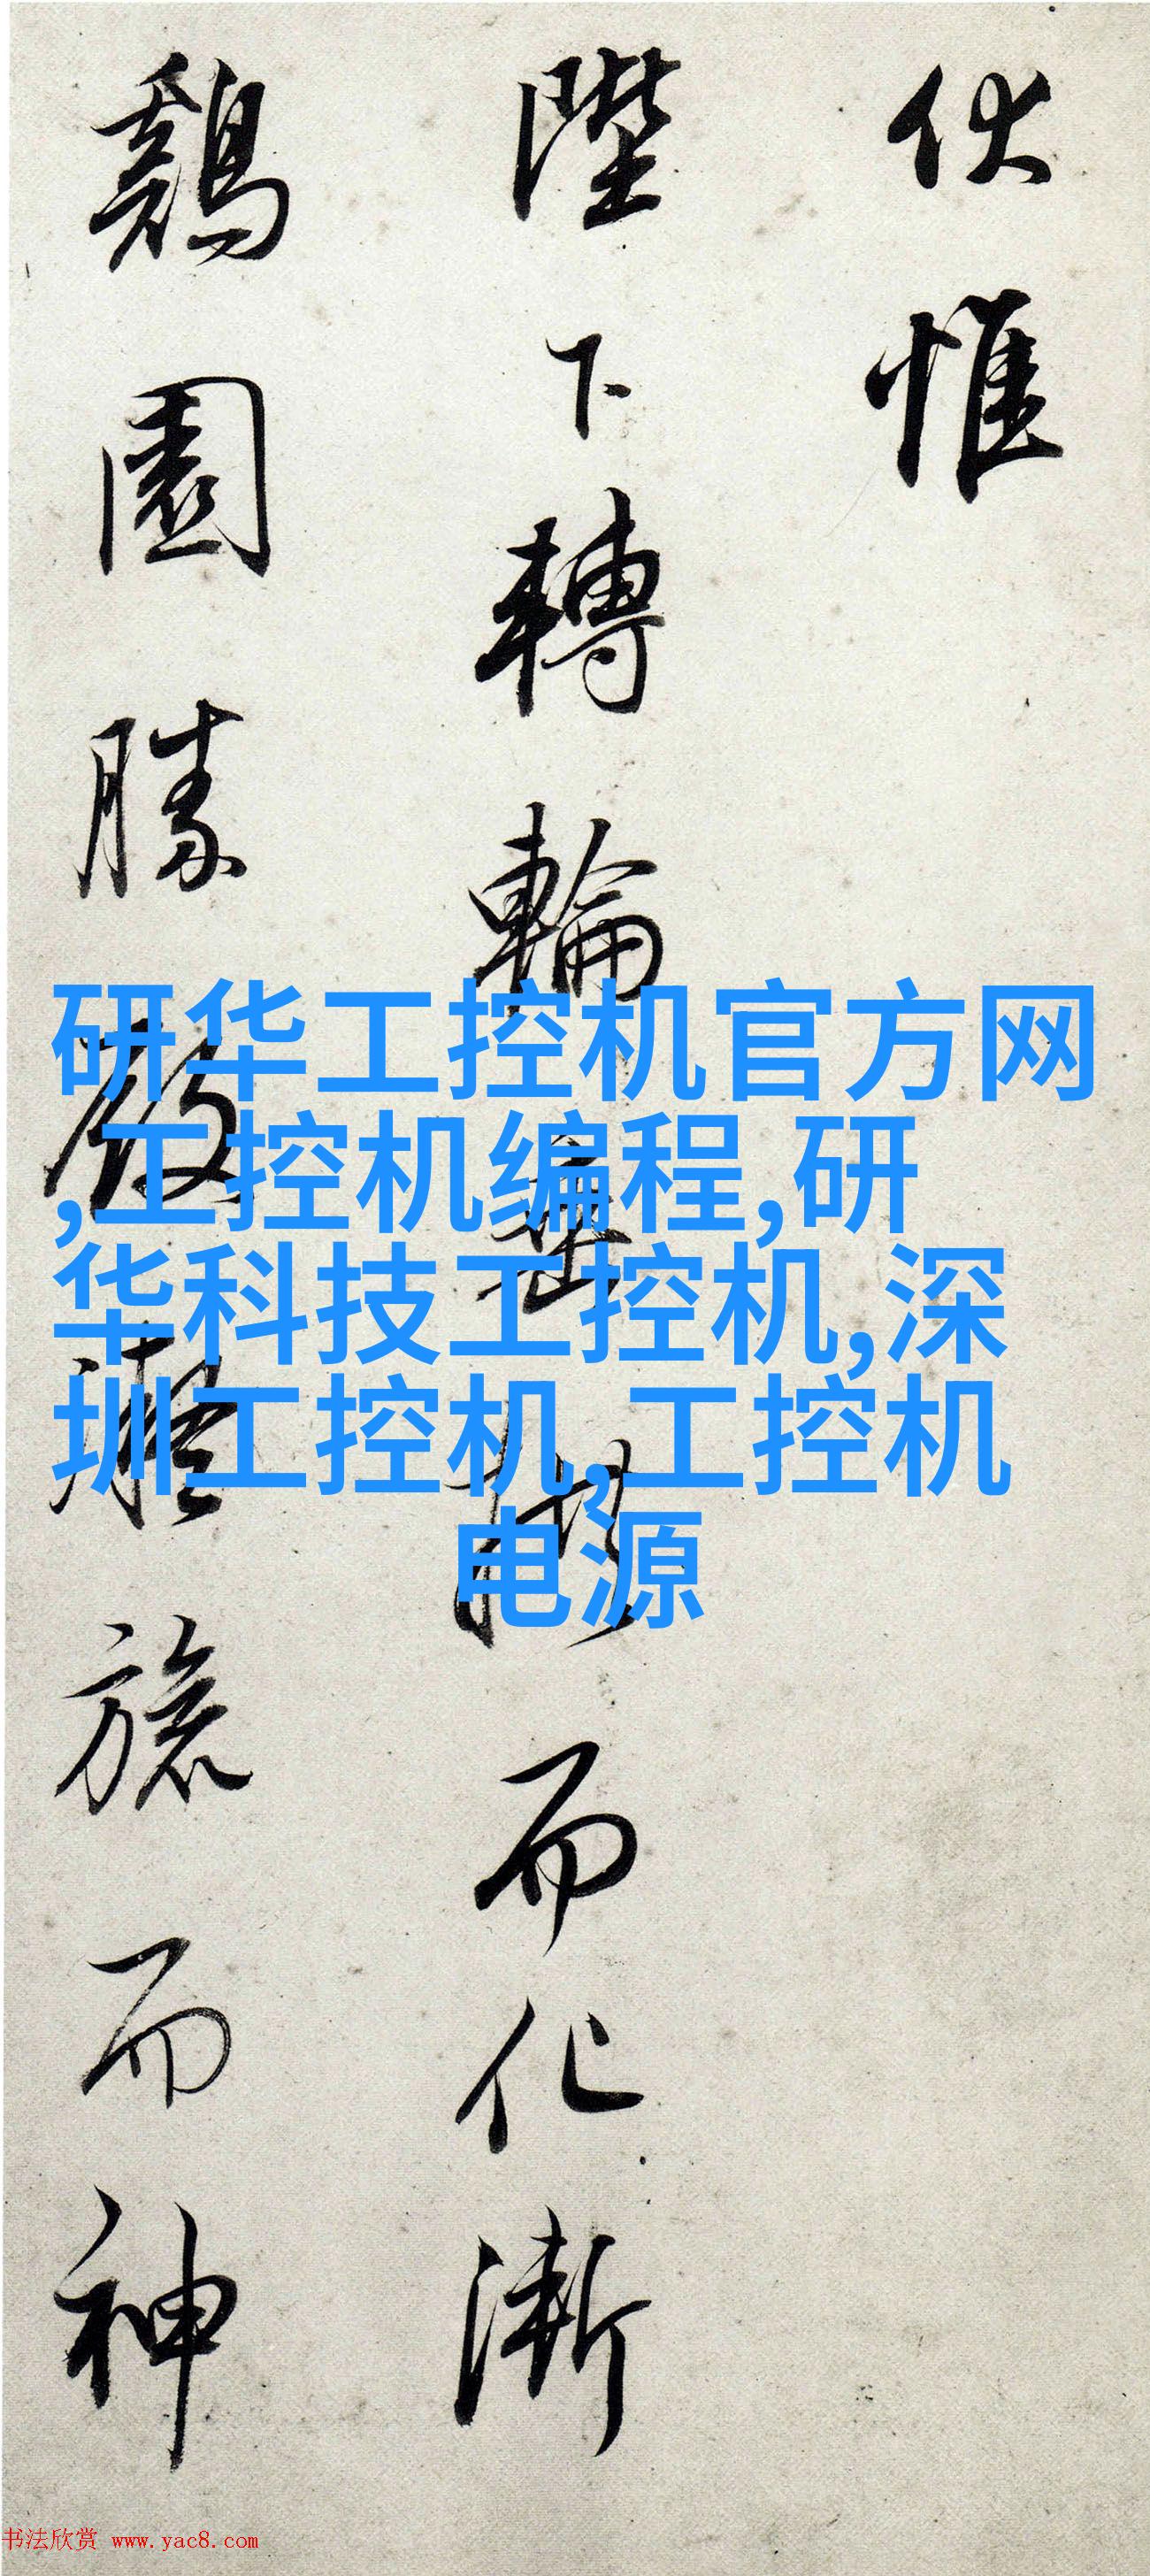 伏惟
陛下轉輪
而化漸
鷄園勝
旅而神
研华工控机官方网
,工控机编程,研
华科技工控机,深
圳工控机,工控机
电源
书法欣赏 www.yac8.com